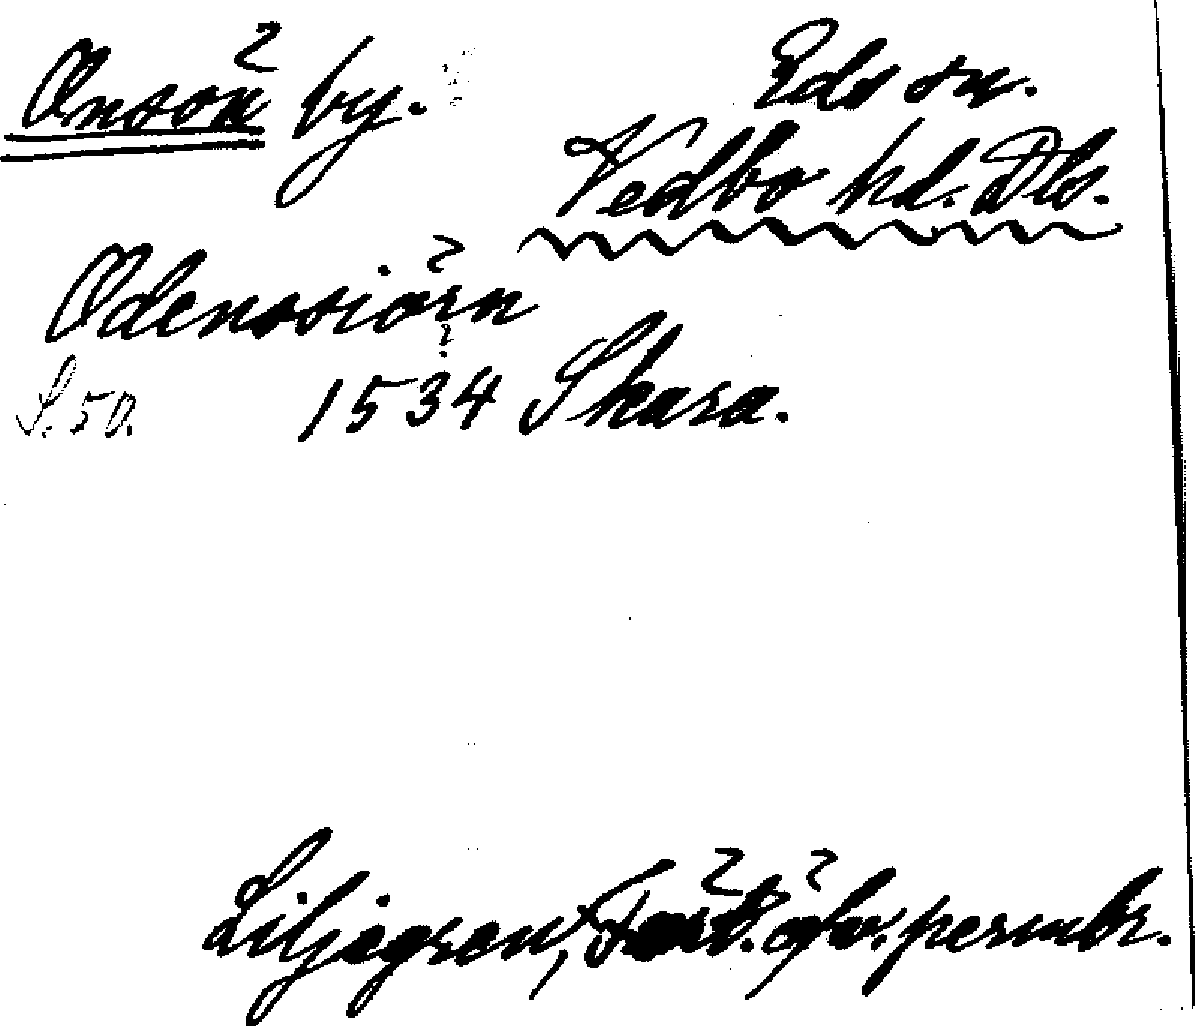 Onsön by.
Eds sn.
Vedbo hd. Dls.
Odenssiörn
S. 50.
1534 Skara.
Liljegren, Fört. öfv. permbr.